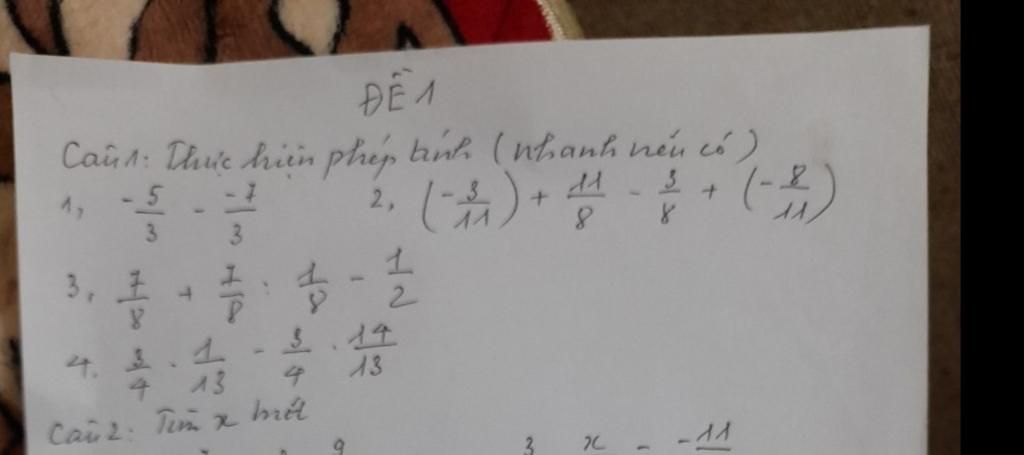 ĐỀ 1
Câu 1: Thực hiện phép tính (nhanh nếu có)
1, -5/3 - -7/3 2, (-3/11) + 11/8 - 3/8 + (-8/11)
3, 7/8 + 7/8 : 1/8 - 1/2
4. 3/4 . 1/13 - 3/4 . 14/13
Câu 2: Tìm x biết